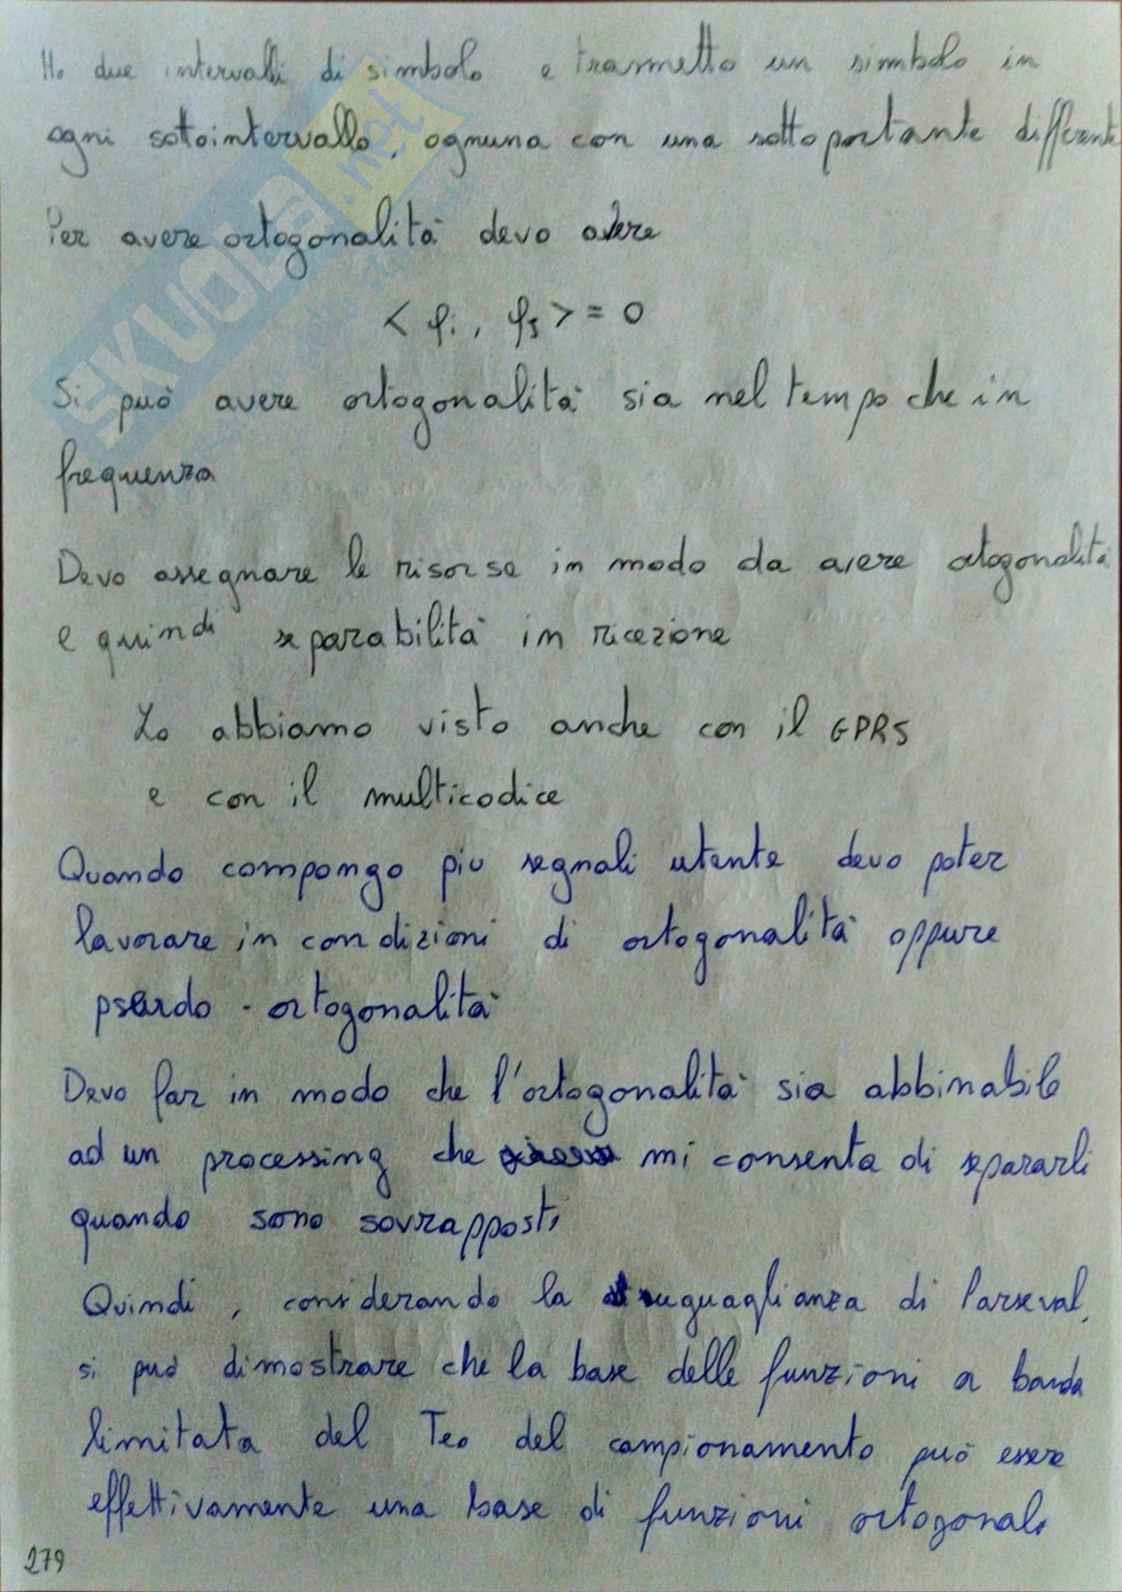 Ho due intervalli di simbolo e trasmetto un simbolo in
ogni sotointervallo, ognuna con una sottoportante differente
Per avere ortogonalità devo avere
< φi, φj > = 0
Si può avere ortogonalità sia nel tempo che in
frequenza
Devo assegnare le risorse in modo da avere otogonalità
e quindi separabilità in ricezione
Lo abbiamo visto anche con il GPRS
e con il multicodice
Quando compongo piu segnali utente devo poter
lavorare in condizioni di ortogonalità oppure
pseudo - ortogonalità
Devo far in modo che l'ortogonalità sia abbinabile
ad un processing che mi consenta di separarli
quando sono sovrapposti
Quindi, considerando la uguaglianza di Parseval,
si può dimostrare che la base delle funzioni a banda
limitata del Teo del campionamento può essere
effettivamente una base di funzioni ortogonali
279
SKUOLA.net